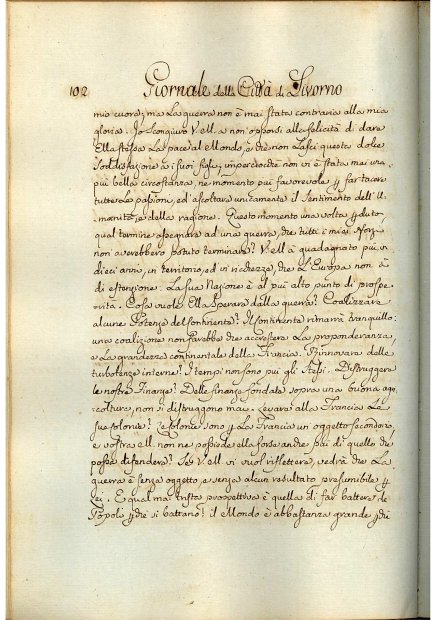 102 Giornale della Città di Livorno
mio cuore; ma la guerra non è mai stata contraria alla mia
gloria. Io scongiuro V. M. a non opporsi alla felicità di dare
Ella stessa la pace al Mondo, e che non lasci questa dolce
soddisfazione a i suoi figli; imperciocchè non vi è stata mai una
più bella circostanza, ne momento più favorevole p far tacere
tutte le passioni, ed ascoltare unicamente il sentimento dell'u=
manità, e della ragione. Questo momento una volta pduto,
qual termine assegnare ad una guerra, che tutti i miei sforzi
non avrebbero potuto terminare? V. M. à guadagnato più in
dieci anni, in territorio, ed in ricchezze, che L'Europa non à
di estensione. La sua Nazione è al più alto punto di prospe=
rità. Cosa vuole Ella sperare dalla guerra? Coalizzare
alcune Potenze del Continente? Il Continente rimarrà tranquillo:
una coalizione non farebbe che accrescere la preponderanza,
e la grandezza continentale della Francia. Rinnovare delle
turbolenze interne? I tempi non sono più gli stessi. Distruggere
le nostre Finanze? Delle finanze fondate sopra una buona agri=
coltura, non si distruggono mai. Levare alla Francia le
sue Colonie? Le Colonie sono p la Francia un'oggetto secondario,
e vostra M. non ne possiede ella forse anche più di quello che
possa difendere? Se V. M. vi vuol riflettere, vedrà che la
guerra è senza oggetto, e senza alcun resultato presumibile p
Lei. E qual mai trista prospettiva è quella di far battere de
Popoli pchè si battano! il Mondo è abbastanza grande pchè